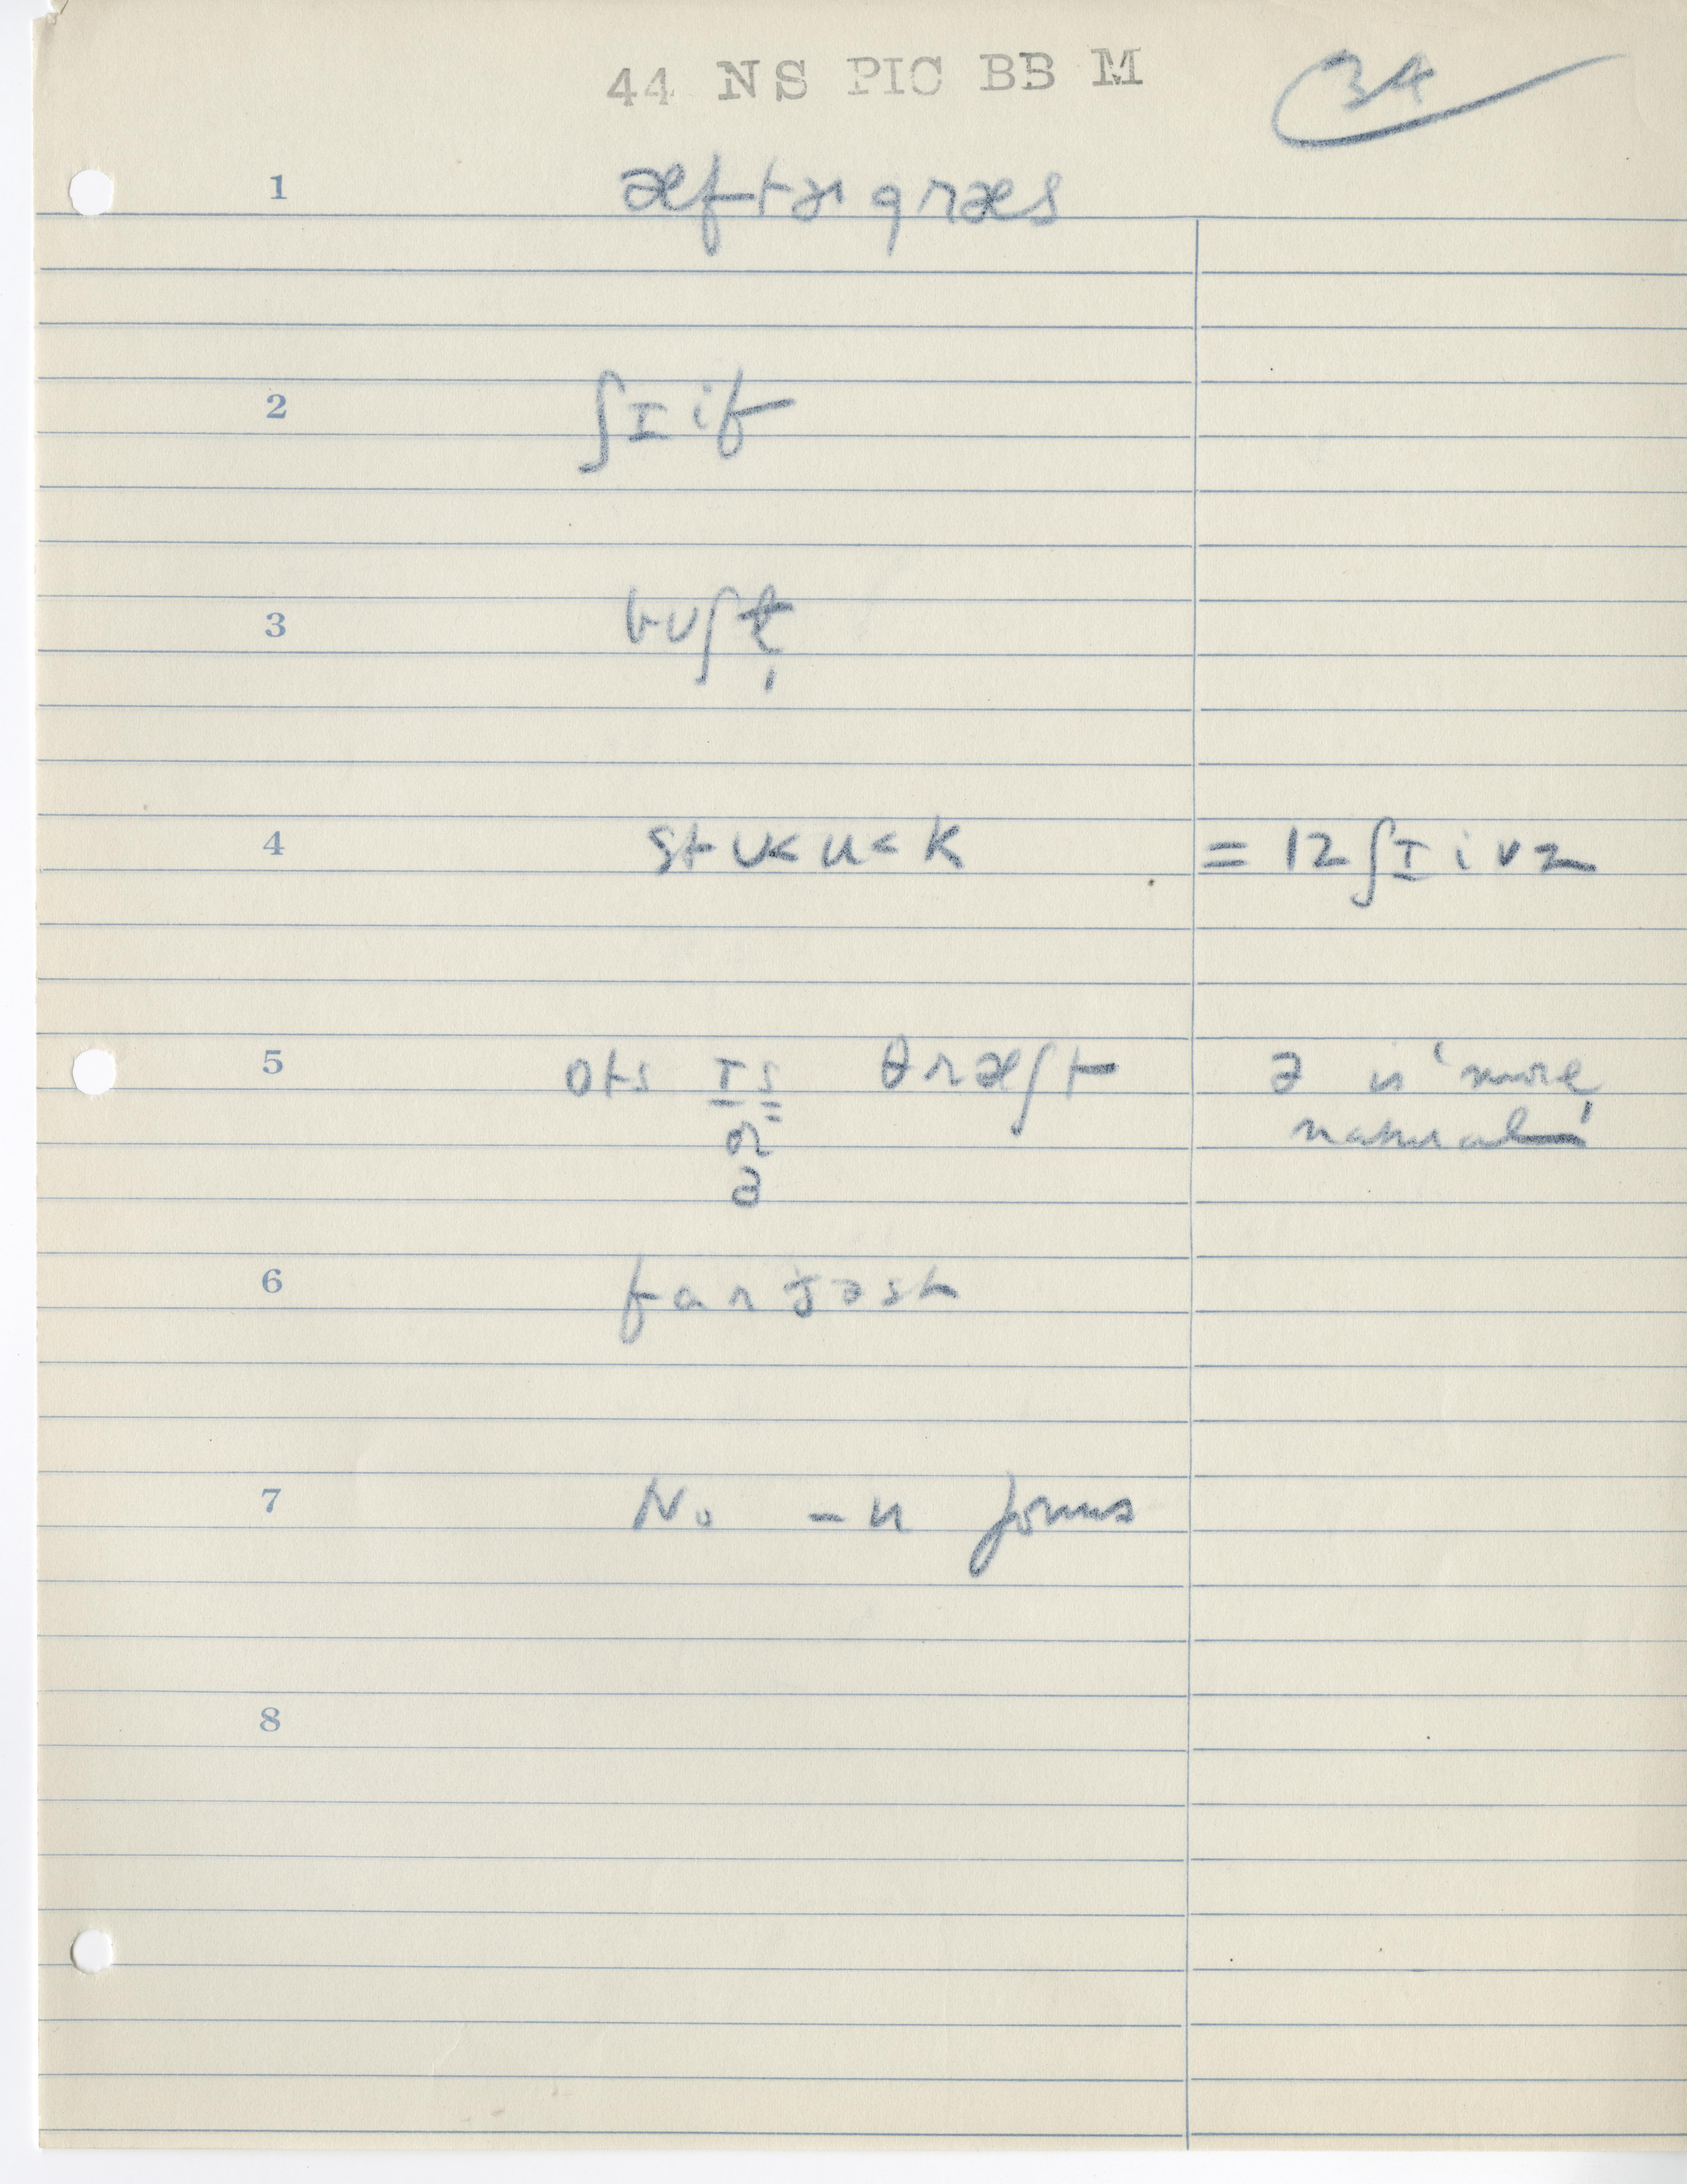 44 NS PIC BB M
34
1 æftɚ græs
2 ʃɪif
3 bʊʃt̩
4 stʊ<u<k = 12 ʃɪivz
5 ots ɪs θræʃt ə is 'more
or natural'
ə
6 farjəst
7 No -n forms
8